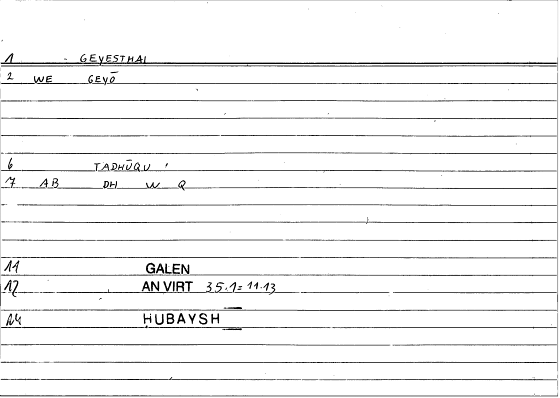 1 - GEYESTHAI
2 WE GEYŌ
6 TADHŪQU '
7 AB DH W Q
11 GALEN
12 AN VIRT 35.1 = 11.13
14 HUBAYSH